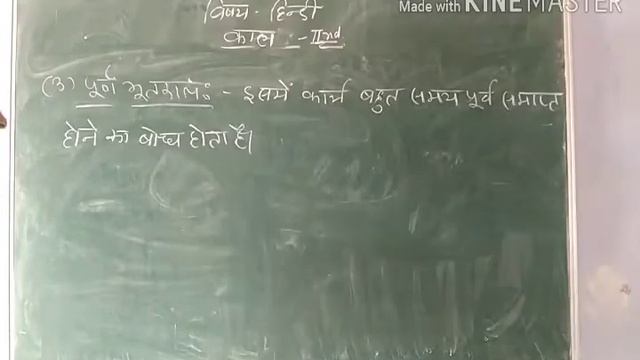 Made with KINEMASTER
विषय - हिन्दी
काल :- IInd
(३) पूर्ण भूतकाल :- इसमें कार्य बहुत समय पूर्व समाप्त
होने का बोध होता है।